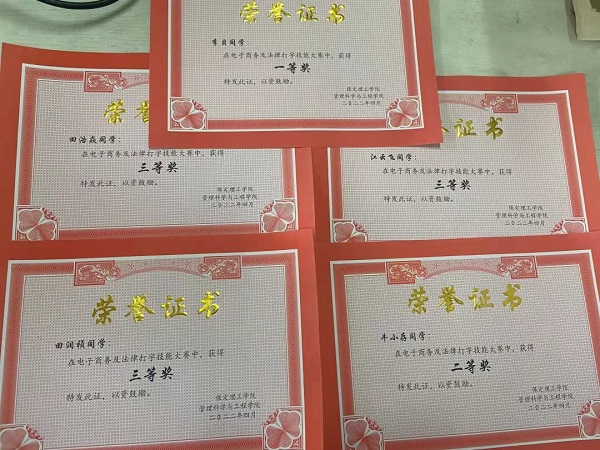 荣誉证书
李贝同学：
在电子商务及法律打字技能大赛中，获得
一等奖
特发此证，以资鼓励。
保定理工学院
管理科学与工程学院
二〇二二年四月
荣誉证书
田浩焱同学：
在电子商务及法律打字技能大赛中，获得
三等奖
特发此证，以资鼓励。
保定理工学院
管理科学与工程学院
二〇二二年四月
证书
江云飞同学：
在电子商务及法律打字技能大赛中，获得
三等奖
特发此证，以资鼓励。
保定理工学院
管理科学与工程学院
二〇二二年四月
荣誉证书
田润桢同学：
在电子商务及法律打字技能大赛中，获得
三等奖
特发此证，以资鼓励。
保定理工学院
管理科学与工程学院
二〇二二年四月
荣誉证书
同学：
在电子商务及法律打字技能大赛中，获得
二等奖
特发此证，以资鼓励。
保定理工学院
管理科学与工程学院
二〇二二年四月